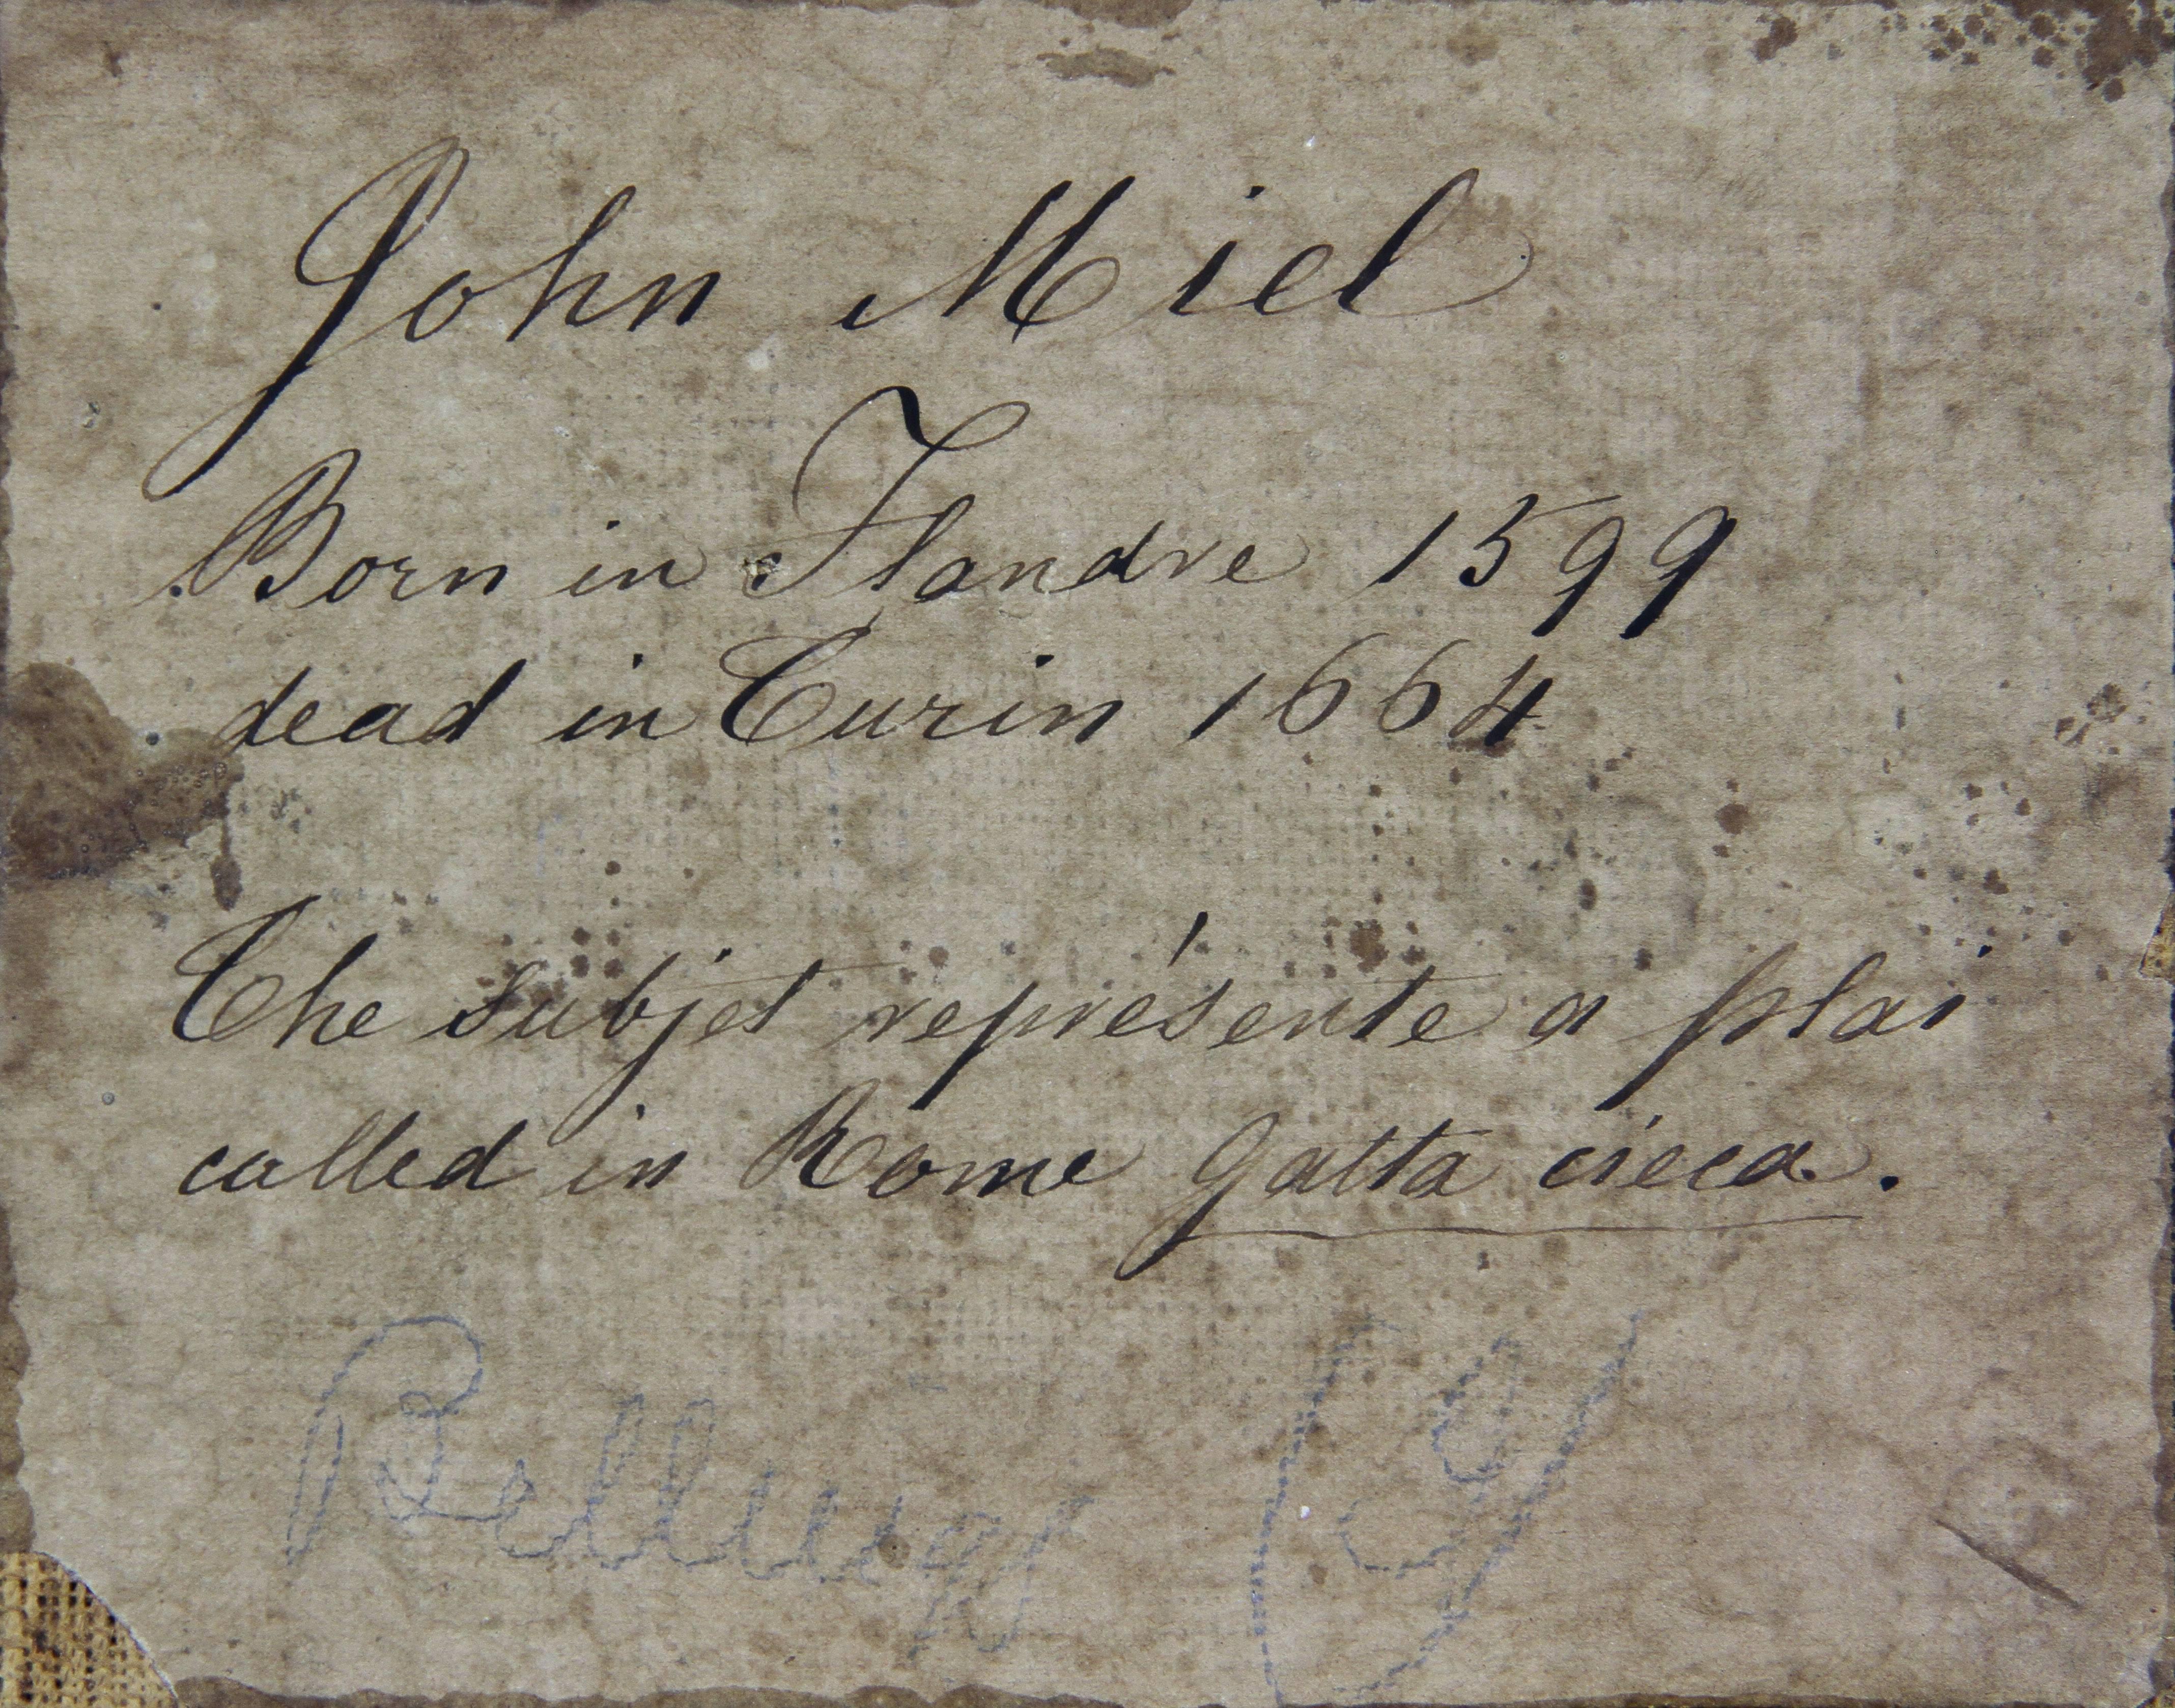 John Miel
Born in Flandre 1599
dead in Turin 1664
The subjet représente a plai
called in Rome Gatta cieca.